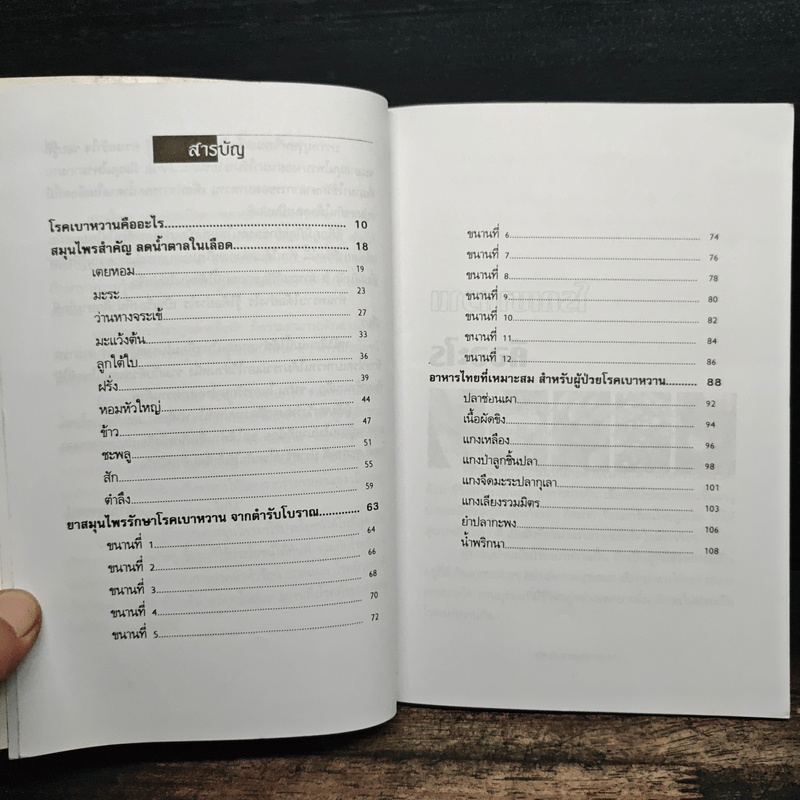 สารบัญ
โรคเบาหวานคืออะไร.................... 10
สมุนไพรสำคัญ ลดน้ำตาลในเลือด.................... 18
เตยหอม.................... 19
มะระ.................... 23
ว่านหางจระเข้.................... 27
มะแว้งต้น.................... 33
ลูกใต้ใบ.................... 36
ฝรั่ง.................... 39
หอมหัวใหญ่.................... 44
ข้าว.................... 47
ชะพลู.................... 51
สัก.................... 55
ตำลึง.................... 59
ยาสมุนไพรรักษาโรคเบาหวาน จากตำรับโบราณ............ 63
ขนานที่ 1.................... 64
ขนานที่ 2.................... 66
ขนานที่ 3.................... 68
ขนานที่ 4.................... 70
ขนานที่ 5.................... 72
ขนานที่ 6.................... 74
ขนานที่ 7.................... 76
ขนานที่ 8.................... 78
ขนานที่ 9.................... 80
ขนานที่ 10.................... 82
ขนานที่ 11.................... 84
ขนานที่ 12.................... 86
อาหารไทยที่เหมาะสม สำหรับผู้ป่วยโรคเบาหวาน.......... 88
ปลาช่อนเผา.................... 92
เนื้อผัดขิง.................... 94
แกงเหลือง.................... 96
แกงป่าลูกชิ้นปลา.................... 98
แกงจืดมะระปลากุเลา.................... 101
แกงเลียงรวมมิตร.................... 103
ยำปลากะพง.................... 106
น้ำพริกนา.................... 108